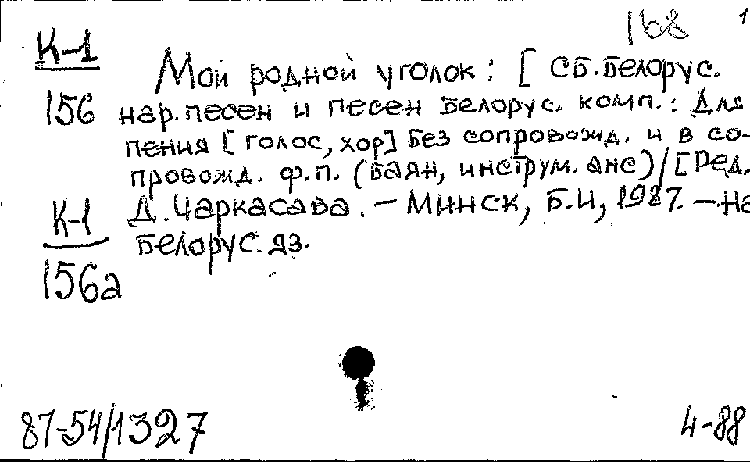 168 1
К-1
Мой родной уголок: [ Сб. белорус.
156 нар. песен и песен белорус. комп.: Для
пения [голос, хор] без сопровожд. и в со-
провожд. ф.п. (баян, инструм. анс)/[Ред.
К-1 Д. Чаркасава. – Минск, Б.И, 1987. – На
белорус. яз.
156а
87-54/1327 4-88